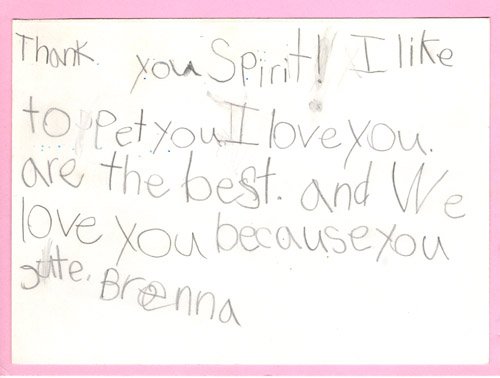 Thank you Spirit! I like
to pet you I love you.
are the best. and We
love you because you
Brenna